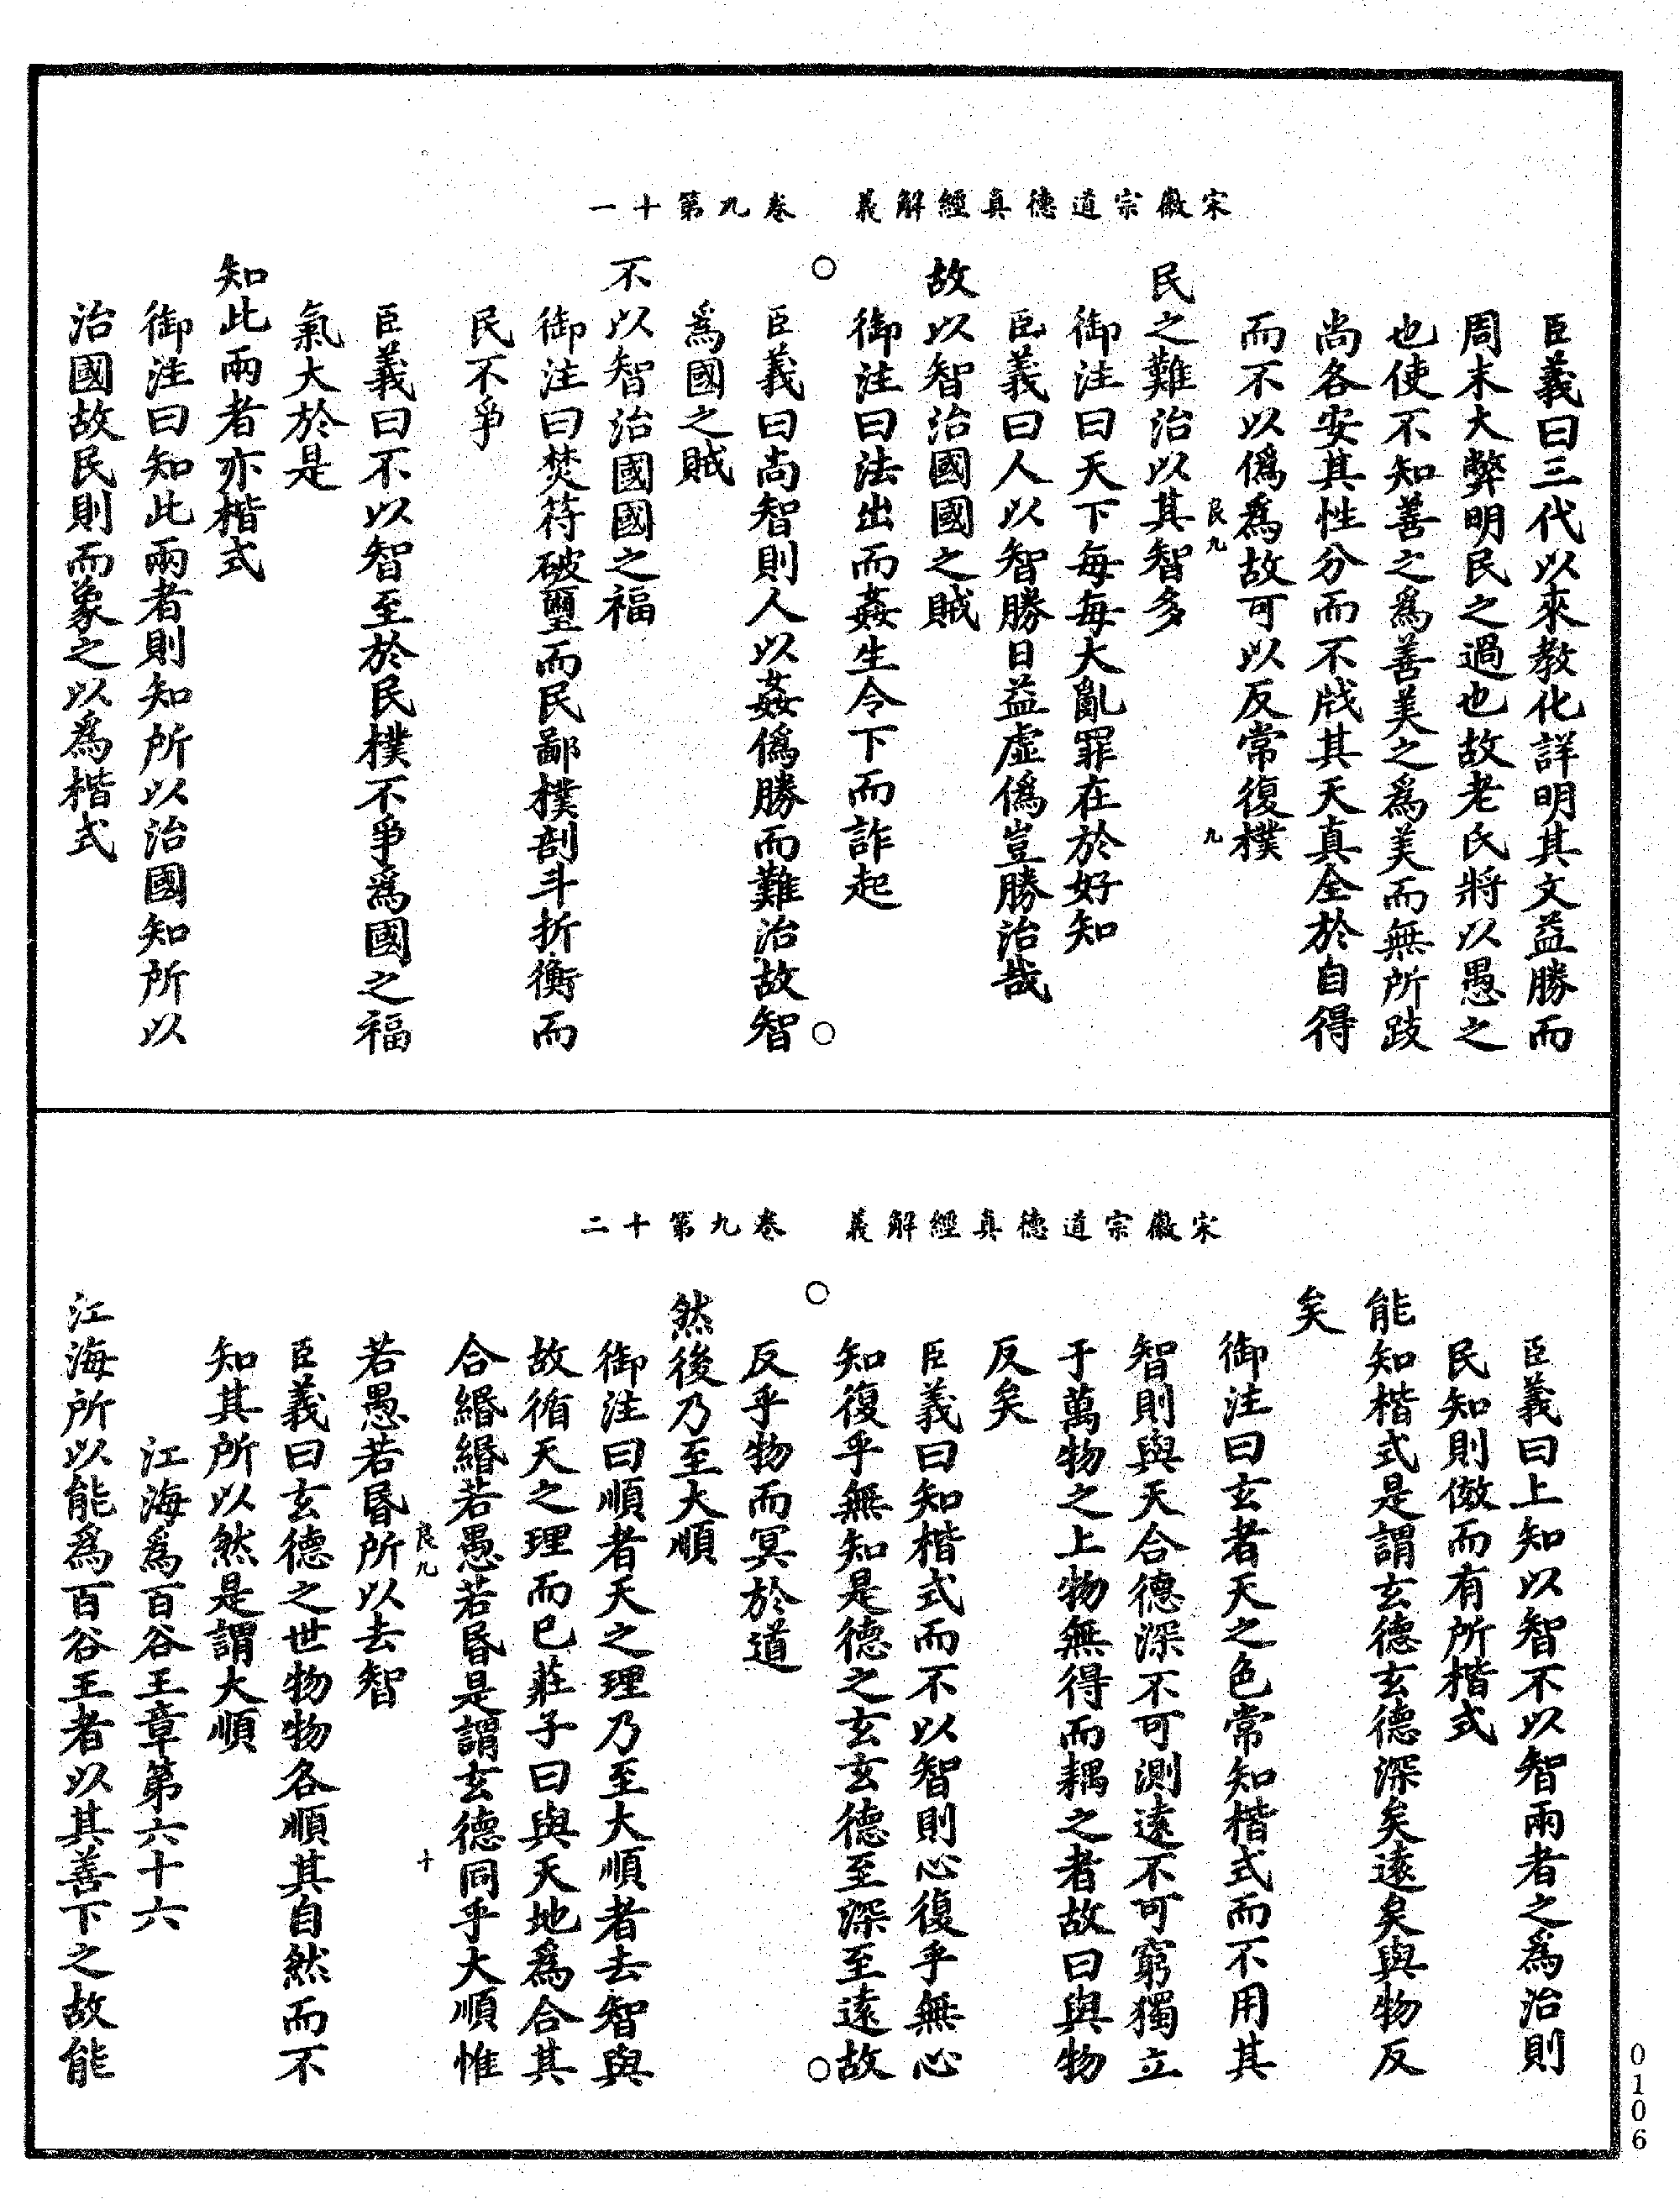 宋徽宗道德真經解義　卷九第十一
臣義曰三代以來教化詳明其文益勝而
周末大弊明民之過也故老氏將以愚之
也使不知善之爲善美之爲美而無所跂
尚各安其性分而不戕其天真全於自得
而不以僞爲故可以反常復樸
良九　九
民之難治以其智多
御注曰天下每每大亂罪在於好知
臣義曰人以智勝日益虛僞豈勝治哉
故以智治國國之賊
御注曰法出而姦生令下而詐起
○　○
臣義曰尚智則人以姦僞勝而難治故智
爲國之賊
不以智治國國之福
御注曰焚符破璽而民鄙樸剖斗折衡而
民不爭
臣義曰不以智至於民樸不爭爲國之福
氣大於是
知此兩者亦楷式
御注曰知此兩者則知所以治國知所以
治國故民則而象之以爲楷式
宋徽宗道德真經解義　卷九第十二
臣義曰上知以智不以智兩者之爲治則
民知則倣而有所楷式
能知楷式是謂玄德玄德深矣遠矣與物反
矣
御注曰玄者天之色常知楷式而不用其
智則與天合德深不可測遠不可窮獨立
于萬物之上物無得而耦之者故曰與物
反矣
臣義曰知楷式而不以智則心復乎無心
知復乎無知是德之玄玄德至深至遠故
○　○
反乎物而冥於道
然後乃至大順
御注曰順者天之理乃至大順者去智與
故循天之理而已莊子曰與天地爲合其
合緡緡若愚若昏是謂玄德同乎大順惟
良九　十
若愚若昏所以去智
臣義曰玄德之世物物各順其自然而不
知其所以然是謂大順
江海爲百谷王章第六十六
江海所以能爲百谷王者以其善下之故能
0106